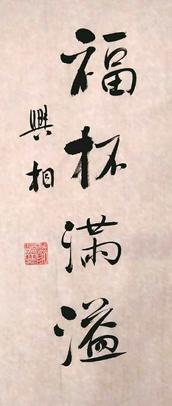 福杯滿溢
興相